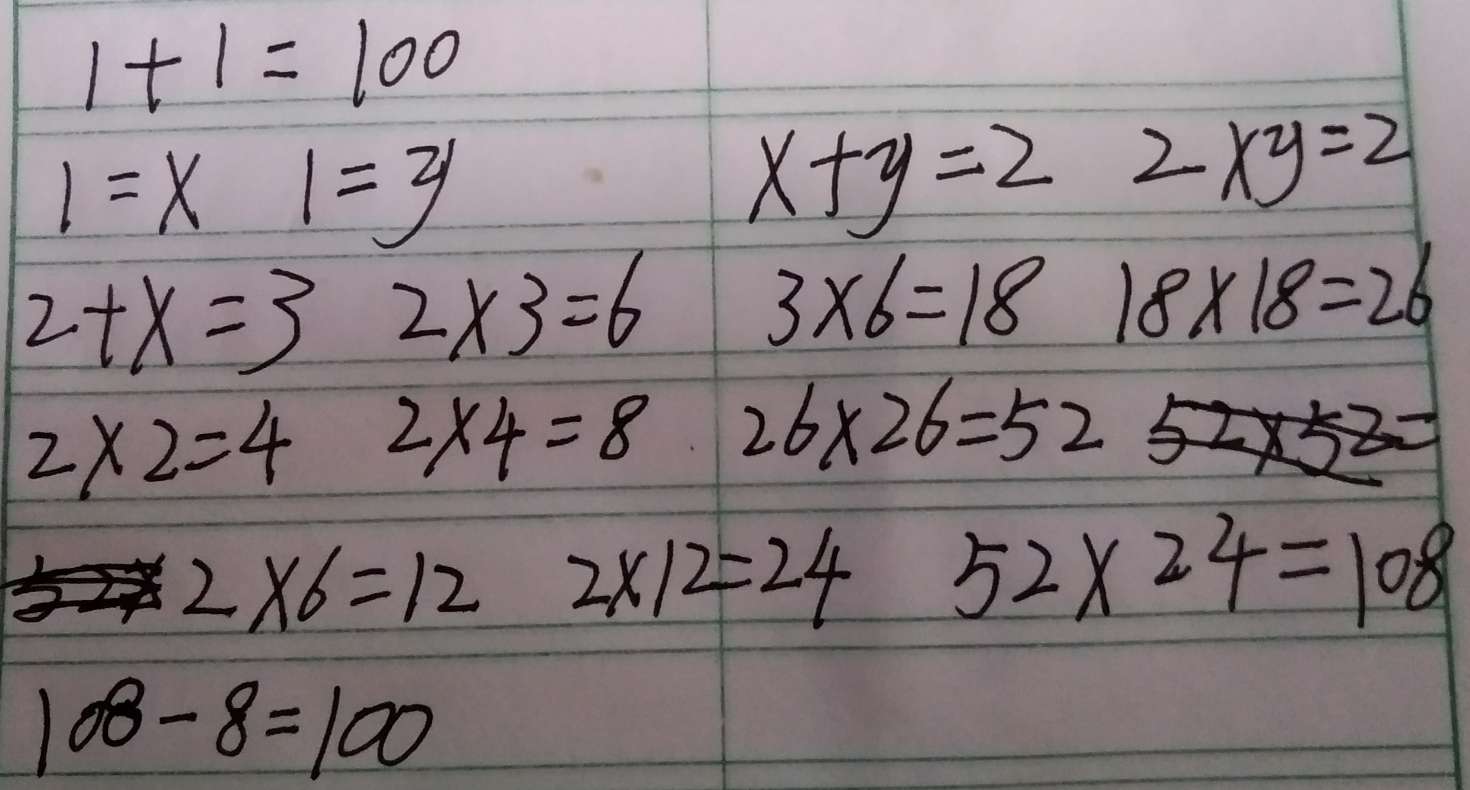 1+1=100
1=x 1=y x+y=2 2×y=2
2+x=3 2×3=6 3×6=18 18×18=26
2×2=4 2×4=8 26×26=52 52×52=
2×6=12 2×12=24 52×24=108
108-8=100